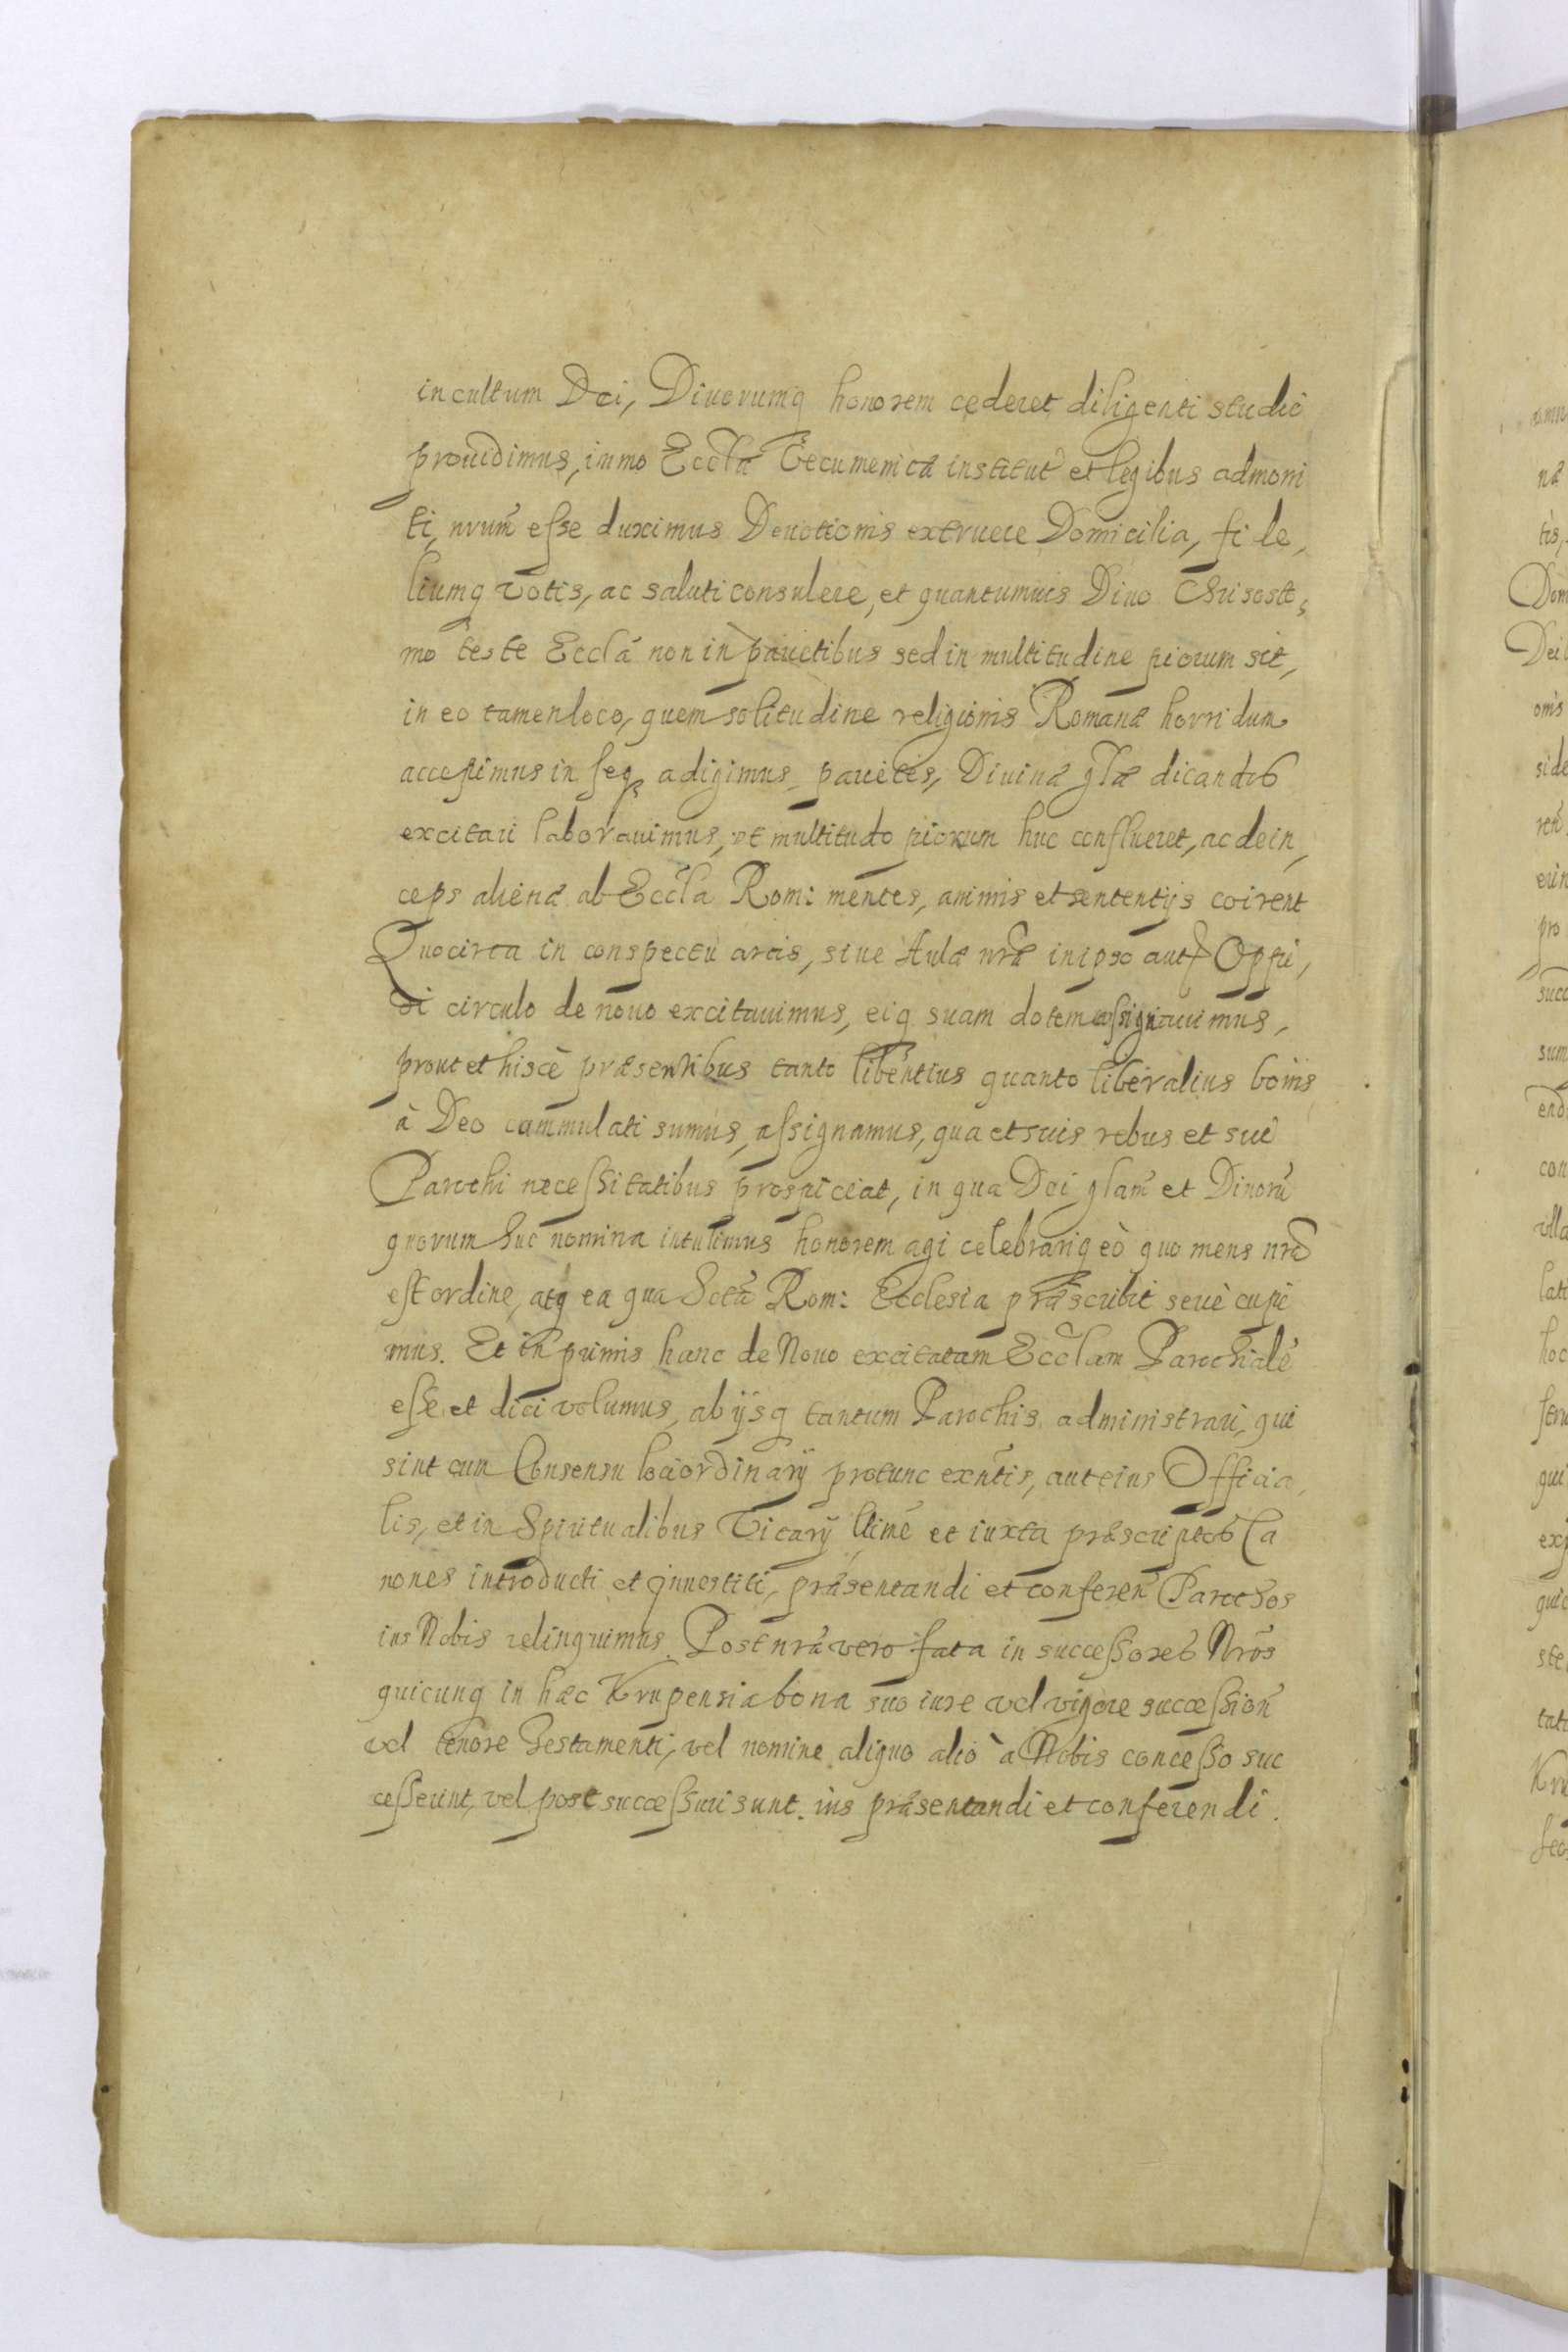 in cultum Dei, Diuorumq honorem cederet diligenti studio
prouidimus, inmo Eccłæ Œcumenicæ institut et legibus admoni
ti, nrum̃ eſse duximus Deuotionis extruere Domicilia, fi de,
liumq votis, ac saluti consulere, et quantumuis Diuo Chrisosto,
mo teste Eccłã non in parietibus sed in multitudine piorum sit,
in eo tamen loco, quem solitudine religionis Romanæ horridum
accepimus in seq adigimus parietes, Diuinæ głæ dicandos
excitari laborauimus, vt multitudo piorum huc conflueret, ac dein,
ceps alienæ ab Eccła Rom: mentes, animis et sententijs coirent
Quocirca in conspectu arcis, siue Aulæ nræ in ipso aut Oppi,
di circulo de nouo excitauimus, eiq suam dotem aſsignauimus,
prout et hisce præsentibus tanto libentius quanto liberalius bonis
à Deo cummulati sumus, aſsignamus, qua et suis rebus et sui
Parochi neceſsitatibus prospiciat, in qua Dei głam et Diuorũ
quorum huc nomina intulimus honorem agi celebrariq eò quo mens nrã
eſt ordine, atq ea qua Sctã Rom: Ecclesia præscribit seriè cupi
mus. Et in primis hanc de Nouo excitatam Eccłam Parochialẽ
eſse et dici volumus, ab ijsq tantum Parochis administrari, qui
sint cum Consensu loci ordinarij protunc exñtis, aut eius Officia,
lis, et in Spiritualibus Vicarij łtimẽ et iuxta præscriptos Ca
nones introducti et Inuestiti, præsentandi et conferen̄ Parochos
ius Nobis relinquimus. Post nrã vero fata in succeſsores Nrõs
quicunq in hæc Krupensia bona suo iure vel vigore succeſsion̄
vel tenore Testamenti, vel nomine aliquo alio à Nobis conceſso suc
ceſserint, vel post succeſsuri sunt. ius præsentandi et conferendi.